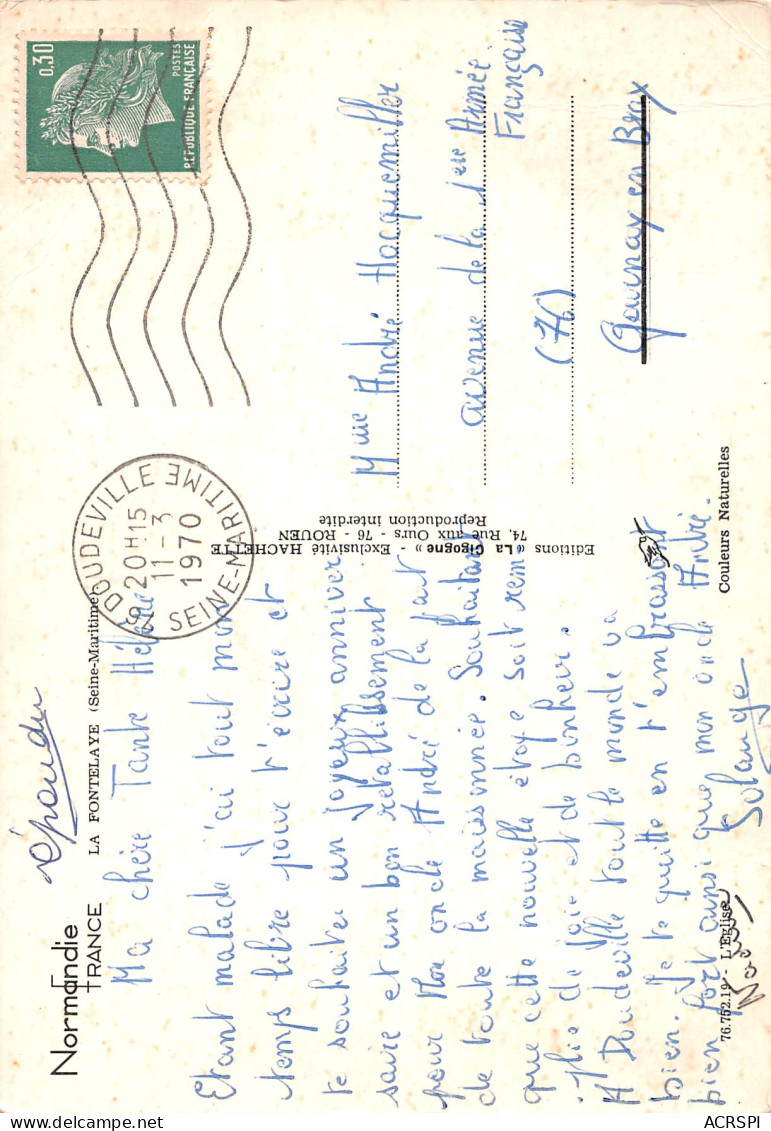 Normandie
FRANCE
LA FONTELAYE (Seine-Maritime)
répondu
Ma chère Tante Hélène
Etant malade j'ai tout mon
temps libre pour t'écrire et
te souhaiter un joyeux anniver
saire et un bon retablissement
pour Mon oncle André de la part
de toute la maisonnée. Souhaitant
que cette nouvelle étape soit rem
plie de joie et de bonheur.
A Doudeville tout le monde va
bien. Je te quitte en t'embrassant
bien fort ainsi que mon oncle André.
Solange
76.752.19 - L'Eglise
Editions « La Cigogne » - Exclusivité HACHETTE
74, Rue aux Ours - 76 - ROUEN
Reproduction interdite
76 DOUDEVILLE
20H15
11-3
1970
SEINE-MARITIME
0,30
POSTES
REPUBLIQUE FRANÇAISE
Mme André Hocquemiller
avenue de la 1ere Armée
Française
(76)
Gournay en Bray
Couleurs Naturelles
ACRSPI